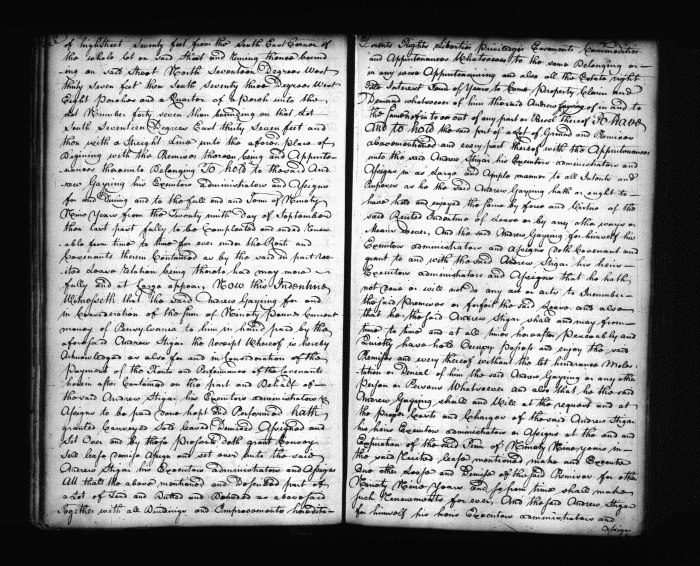 of highstreet Seventy feet from the South East Corner of
the whole lot on said Street and runing thence bound
ing on said Street North Seventeen Degrees West
thirty Seven feet then South Seventy three Degrees West
Eight Perches and a Quarter of a perch unto the
Lot Number forty Seven then bounding on that Lot
South Seventeen Degrees East thirty Seven feet and
then with a Streight Line unto the aforesd place of
Begining with the Premises thereon being and Appurte-
nances thereunto Belonging To hold to the said And
rew Gayring his Executors Administrators and Assigns
for and During and to the full end and Term of Ninety
Nine Years from the Twenty ninth Day of September
then last past fully to be Compleated and ended Renew
able from time to time for ever under the Rent and
Covenants therein Contained as by the said in part reci
ted Lease Relation being thereto had may more
fully and at Large appear, Now this Indenture
Witnesseth that the said Andrew Gayring for and
in Consideration of the Sum of Ninety Pounds Current
money of Pensylvania to him in hand paid by the
aforesaid Andrew Stigar the receipt Whereof is hereby
Acknowledged as also for and in Consideration of the
Payment of the Rents and Performance of the Covenants
herein after Contained on the part and Behalf of
the said Andrew Stigar his Executors administrators &
Assigns to be paid done kept and Performed hath
granted Conveyed Sold leased Demised Assigned and
Set Over and by these Presents doth grant Convey
Sell lease demise Assign and set over unto the said
Andrew Stigar his Executors administrators and Assigns
All that the above mentioned and Described part of
a Lot of Land and Butted and Bounded as abovesaid
Together with all Buildings and Improvements heredita-
ments Rights Liberties Priviledges Easements Commodities
and Appurtenances Whatsoever to the same Belonging or
in any wise Appurtenanning and also all the Estate right
Title Interest Term of Years to Come Property Claim and
Demand whatsoever of him the said Andrew Gayring of in and to
the same of in to or out of any part or Parcel thereof To have
And to hold the said part of a Lot of Ground and Premises
abovementioned and every part thereof with the Appurtenances
unto the said Andrew Stigar his Executors administrators and
Assigns in as Large and Ample manner to all Intents and
Purposes as he the said Andrew Gayring hath or ought to
have held and enjoyed the same by force and Virtue of the
said Recited Indenture of Lease or by any other ways or
Means However, And the said Andrew Gayring for himself his
Executors administrators and Assigns doth Covenant and
grant to and with the said Andrew Stigar his heirs
Executors administrators and Assigns that he hath,
not done or will not do any act or acts to Incumber
the said Premises or forfeit the said Lease and also
that he the said Andrew Stigar shall and may from
time to time and at all times hereafter Peaceably and
Quietly have hold Occupy Possess and enjoy the said
Premises and every thereof without the let hinderance Moles
tation or Denial of him the said Andrew Gayring or any other
Person or Persons Whatsoever and also that he the said
Andrew Gayring shall and Will at the request and at
the proper Costs and Charges of the said Andrew Stigar
his heirs Executors administrators or Assigns at the end and
Expiration of the said Term of Ninety Nine years in
the said Recited lease mentioned, make and Execute
One other Lease and Demise of the said Premises for other
Ninety Nine Years and so from time shall make
such Renewments for ever, And the said Andrew Stigar
for himself his heirs Executors administrators and
Assigns